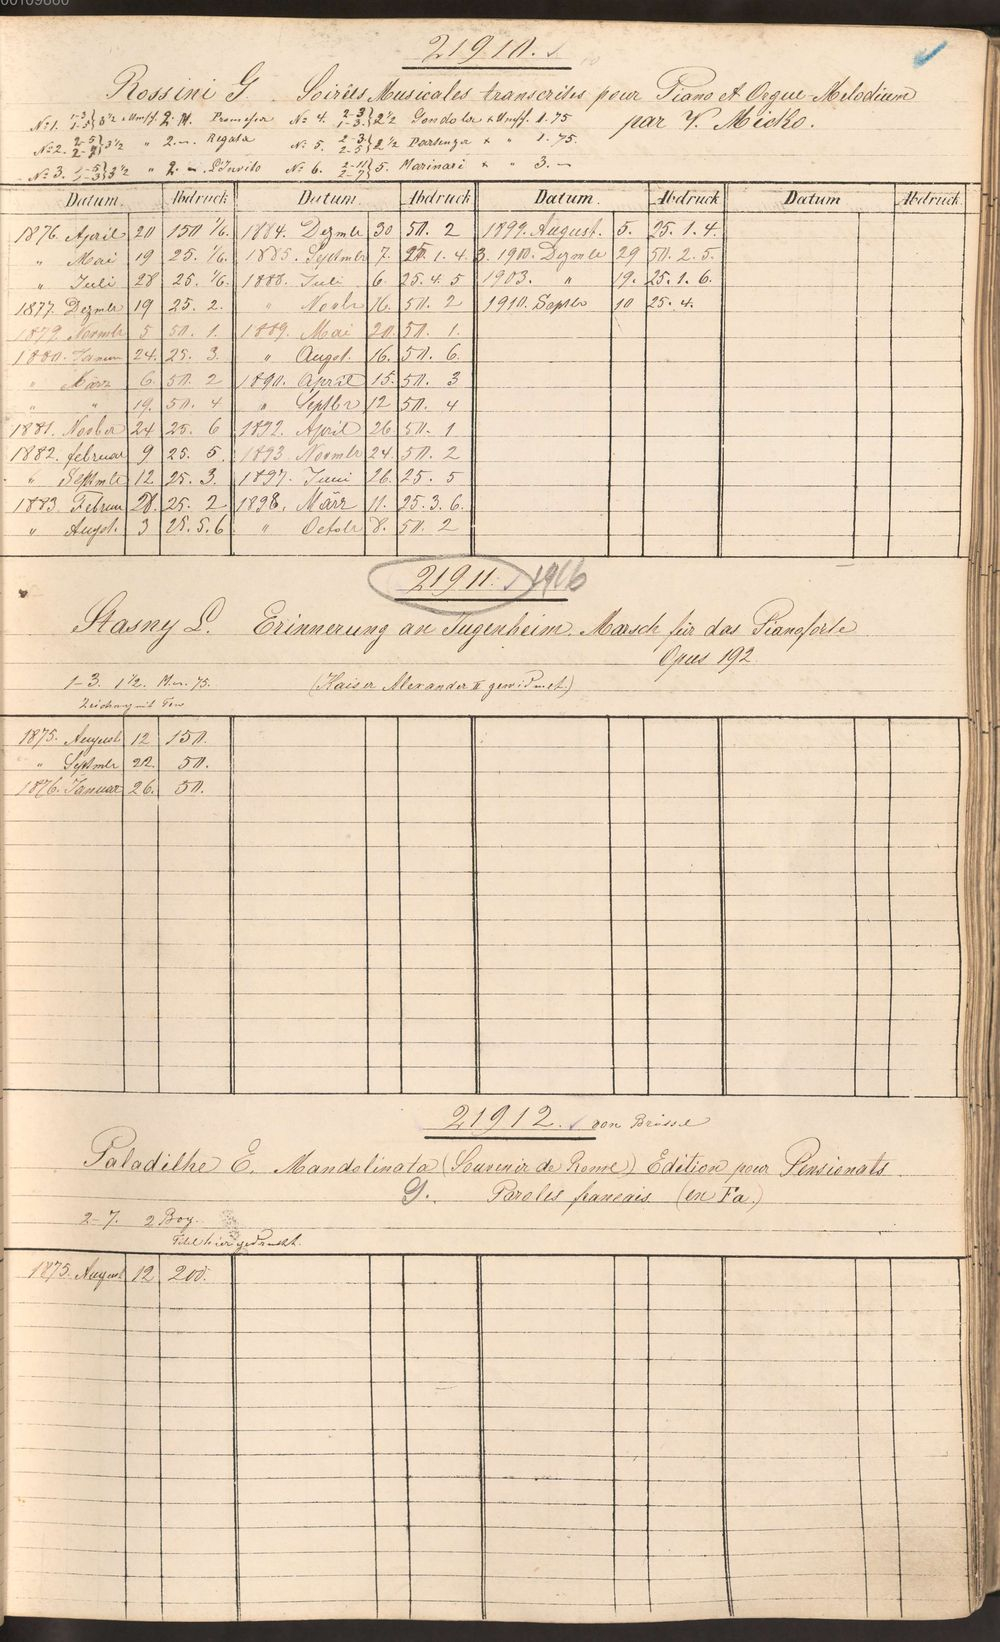 00109660
21910.
Rossini G. Soirées Musicales transcrites pour Piano et Orgue-Melodium
par F. Micko.
No 1. 3½ + Umschl. 2. M. Promessa No 4. 2-3 1-3 2½ Gondola + Umschl. 1.75
No 2. 2-5 3½ " 2.— Regata No 5. 2-3 2-5 2½ Partenza + " 1.75.
No 3. 1-5 2-3 3½ " 2.— L'Invito No 6. 2-11 2-7 5. Marinari + " 3.—
Datum. Abdruck Datum. Abdruck Datum. Abdruck Datum Abdruck
1876. April 20 150 1/6. 1884. Dezmbr 30 50. 2 1899. August. 5. 25. 1. 4.
" Mai 19 25. 1/6. 1885. Septmbr 7. 25. 1. 4. 3. 1900. Dezmbr 29 50. 2. 5.
" Juli 28 25. 1/6. 1888. Juli 6. 25. 4. 5 1903. " 19. 25. 1. 6.
1877. Dezmbr 19 25. 2. " Novbr 16. 50. 2 1910. Septbr 10 25. 4.
1879. Novmbr 5 50. 1. 1889. Mai 20. 50. 1.
1880. Januar 24. 25. 3. " Augst. 16. 50. 6.
" März 6. 50. 2 1890. April 15. 50. 3
" " 19. 50. 4 " Septbr 12 50. 4
1881. Novber 24 25. 6 1892. April 26. 50. 1
1882. februar 9 25. 5. 1893. Novmbr 24. 50. 2
" Septmbr 12 25. 3. 1897. Juni 26. 25. 5
1883. Februar 28. 25. 2 1898. März 11. 25. 3. 6.
" Augst. 3 25. 5. 6 " Octobr 8. 50. 2
21911. 1916
Stasny L. Erinnerung an Jugenheim. Marsch für das Pianoforte
Opus 192.
1-3. 1½. M. –. 75. (Kaiser Alexander II gewidmet.)
Zeichnung mit Ton
1875. August 12 150.
" Septmbr 22. 50.
1876. Januar 26. 50.
21912. von Brüssel
Paladilhe E. Mandolinata (Souvenir de Rome) Edition pour Pensionats
G. Paroles francais. (en Fa.)
2-7. 2 Bog.
Titel hier gedruckt.
1875. August 12 200.